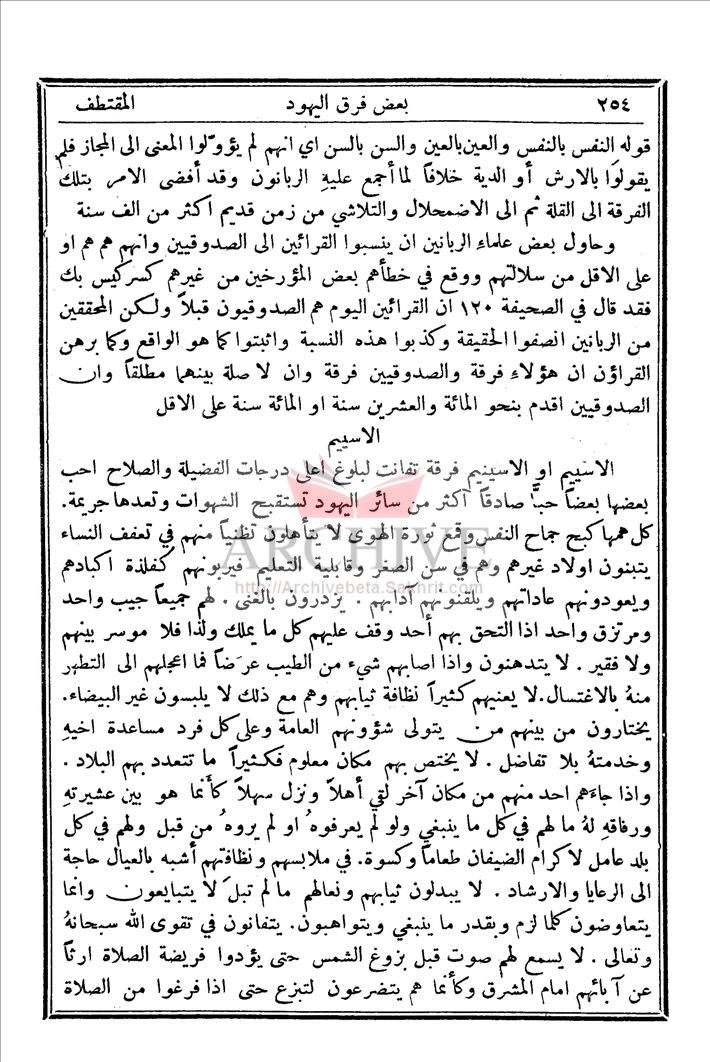 ٢٥٤ بعض فرق اليهود المقتطف
قوله النفس بالنفس والعين بالعين والسن بالسن اي انهم لم يؤوّلوا المعنى الى المجاز فلم
يقولوا بالارش أو الدية خلافاً لما أجمع عليهِ الربانون وقد أفضى الامر بتلك
الفرقة الى القلة ثم الى الاضمحلال والتلاشي من زمن قديم اكثر من الف سنة
وحاول بعض علماء الربانين ان ينسبوا القرائين الى الصدوقيين وانهم هم هم او
على الاقل من سلالتهم ووقع في خطأهم بعض المؤرخين من غيرهم كسركيس بك
فقد قال في الصحيفة ١٢٠ ان القرائين اليوم هم الصدوقيون قبلاً ولكن المحققين
من الربانين انصفوا الحقيقة وكذبوا هذه النسبة واثبتوا كما هو الواقع وكما برهن
القراؤن ان هؤلاء فرقة والصدوقيين فرقة وان لا صلة بينهما مطلقاً وان
الصدوقيين اقدم بنحو المائة والعشرين سنة او المائة سنة على الاقل
الاسييم
الاسييم او الاسينيم فرقة تفانت لبلوغ اعلى درجات الفضيلة والصلاح احب
بعضها بعضاً حبًّا صادقاً أكثر من سائر اليهود تستقبح الشهوات وتعدها جريمة.
كل همها كبح جماح النفس وقمع ثورة الهوى لا يتأهلون تظنياً منهم في تعفف النساء
يتبنون اولاد غيرهم وهم في سن الصغر وقابلية التعليم فيربونهم كفلذة اكبادهم
ويعودونهم عاداتهم ويلقنونهم آدابهم . يزدرون بالغنى . لهم جميعاً جيب واحد
ومرتزق واحد اذا التحق بهم أحد وقف عليهم كل ما يملك ولذا فلا موسر بينهم
ولا فقير . لا يتدهنون واذا اصابهم شيء من الطيب عرَضاً فما اعجلهم الى التطهر
منهُ بالاغتسال. لا يعنيهم كثيراً نظافة ثيابهم وهم مع ذلك لا يلبسون غير البيضاء.
يختارون من بينهم من يتولى شؤونهم العامة وعلى كل فرد مساعدة اخيهِ
وخدمتهُ بلا تفاضل . لا يختص بهم مكان معلوم فكثيراً ما تتعدد بهم البلاد .
واذا جاءَهم احد منهم من مكان آخر لقي أهلاً ونزل سهلاً كأنما هو بين عشيرتهِ
ورفاقهِ لهُ ما لهم في كل ما ينبغي ولو لم يعرفوهُ او لم يروهُ من قبل ولهم في كل
بلد عامل لاكرام الضيفان طعاماً وكسوة. في ملابسهم ونظافتهم أشبه بالعيال حاجة
الى الرعايا والارشاد . لا يبدلون ثيابهم ونعالهم ما لم تبلَ لا يتبايعون وانما
يتعاوضون كلما لزم وبقدر ما ينبغي ويتواهبون. يتفانون في تقوى الله سبحانهُ
وتعالى . لا يسمع لهم صوت قبل بزوغ الشمس حتى يؤدوا فريضة الصلاة ارثاً
عن آبائهم امام المشرق وكأنما هم يتضرعون لتبزع حتى اذا فرغوا من الصلاة
ARCHIVE
http://Archivebeta.Sakhrit.com